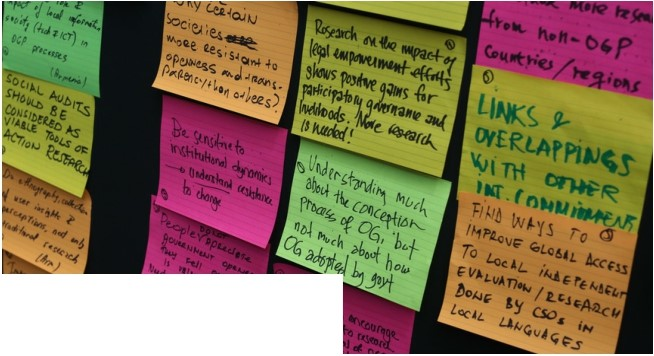 of local
society (tech & ICT) in
OGP processes
SOCIAL AUDITS
SHOULD BE
CONSIDERED AS
VIABLE TOOLS OF
ACTION RESEARCH
user insights &
perceptions, not only
research
WHY CERTAIN
SOCIETIES
more resistant to
openness and trans-
parency/than others?
Be sensitive to
institutional dynamics
→ understand resistance
to change
People appreciate
government
they
is
Research on the impact of
legal empowerment efforts
shows positive gains for
participatory governance and
livelihoods. More research
is needed!
Understanding much
about the conception
process of OG, but
not much about how
OG adopted by govt
encourage
to research
more
from non-OGP
countries/regions
LINKS &
OVERLAPPINGS
WITH OTHER
INT. COMMITMENTS
FIND WAYS TO
IMPROVE GLOBAL ACCESS
TO LOCAL INDEPENDENT
EVALUATION/RESEARCH
DONE BY CSOs IN
LOCAL LANGUAGES